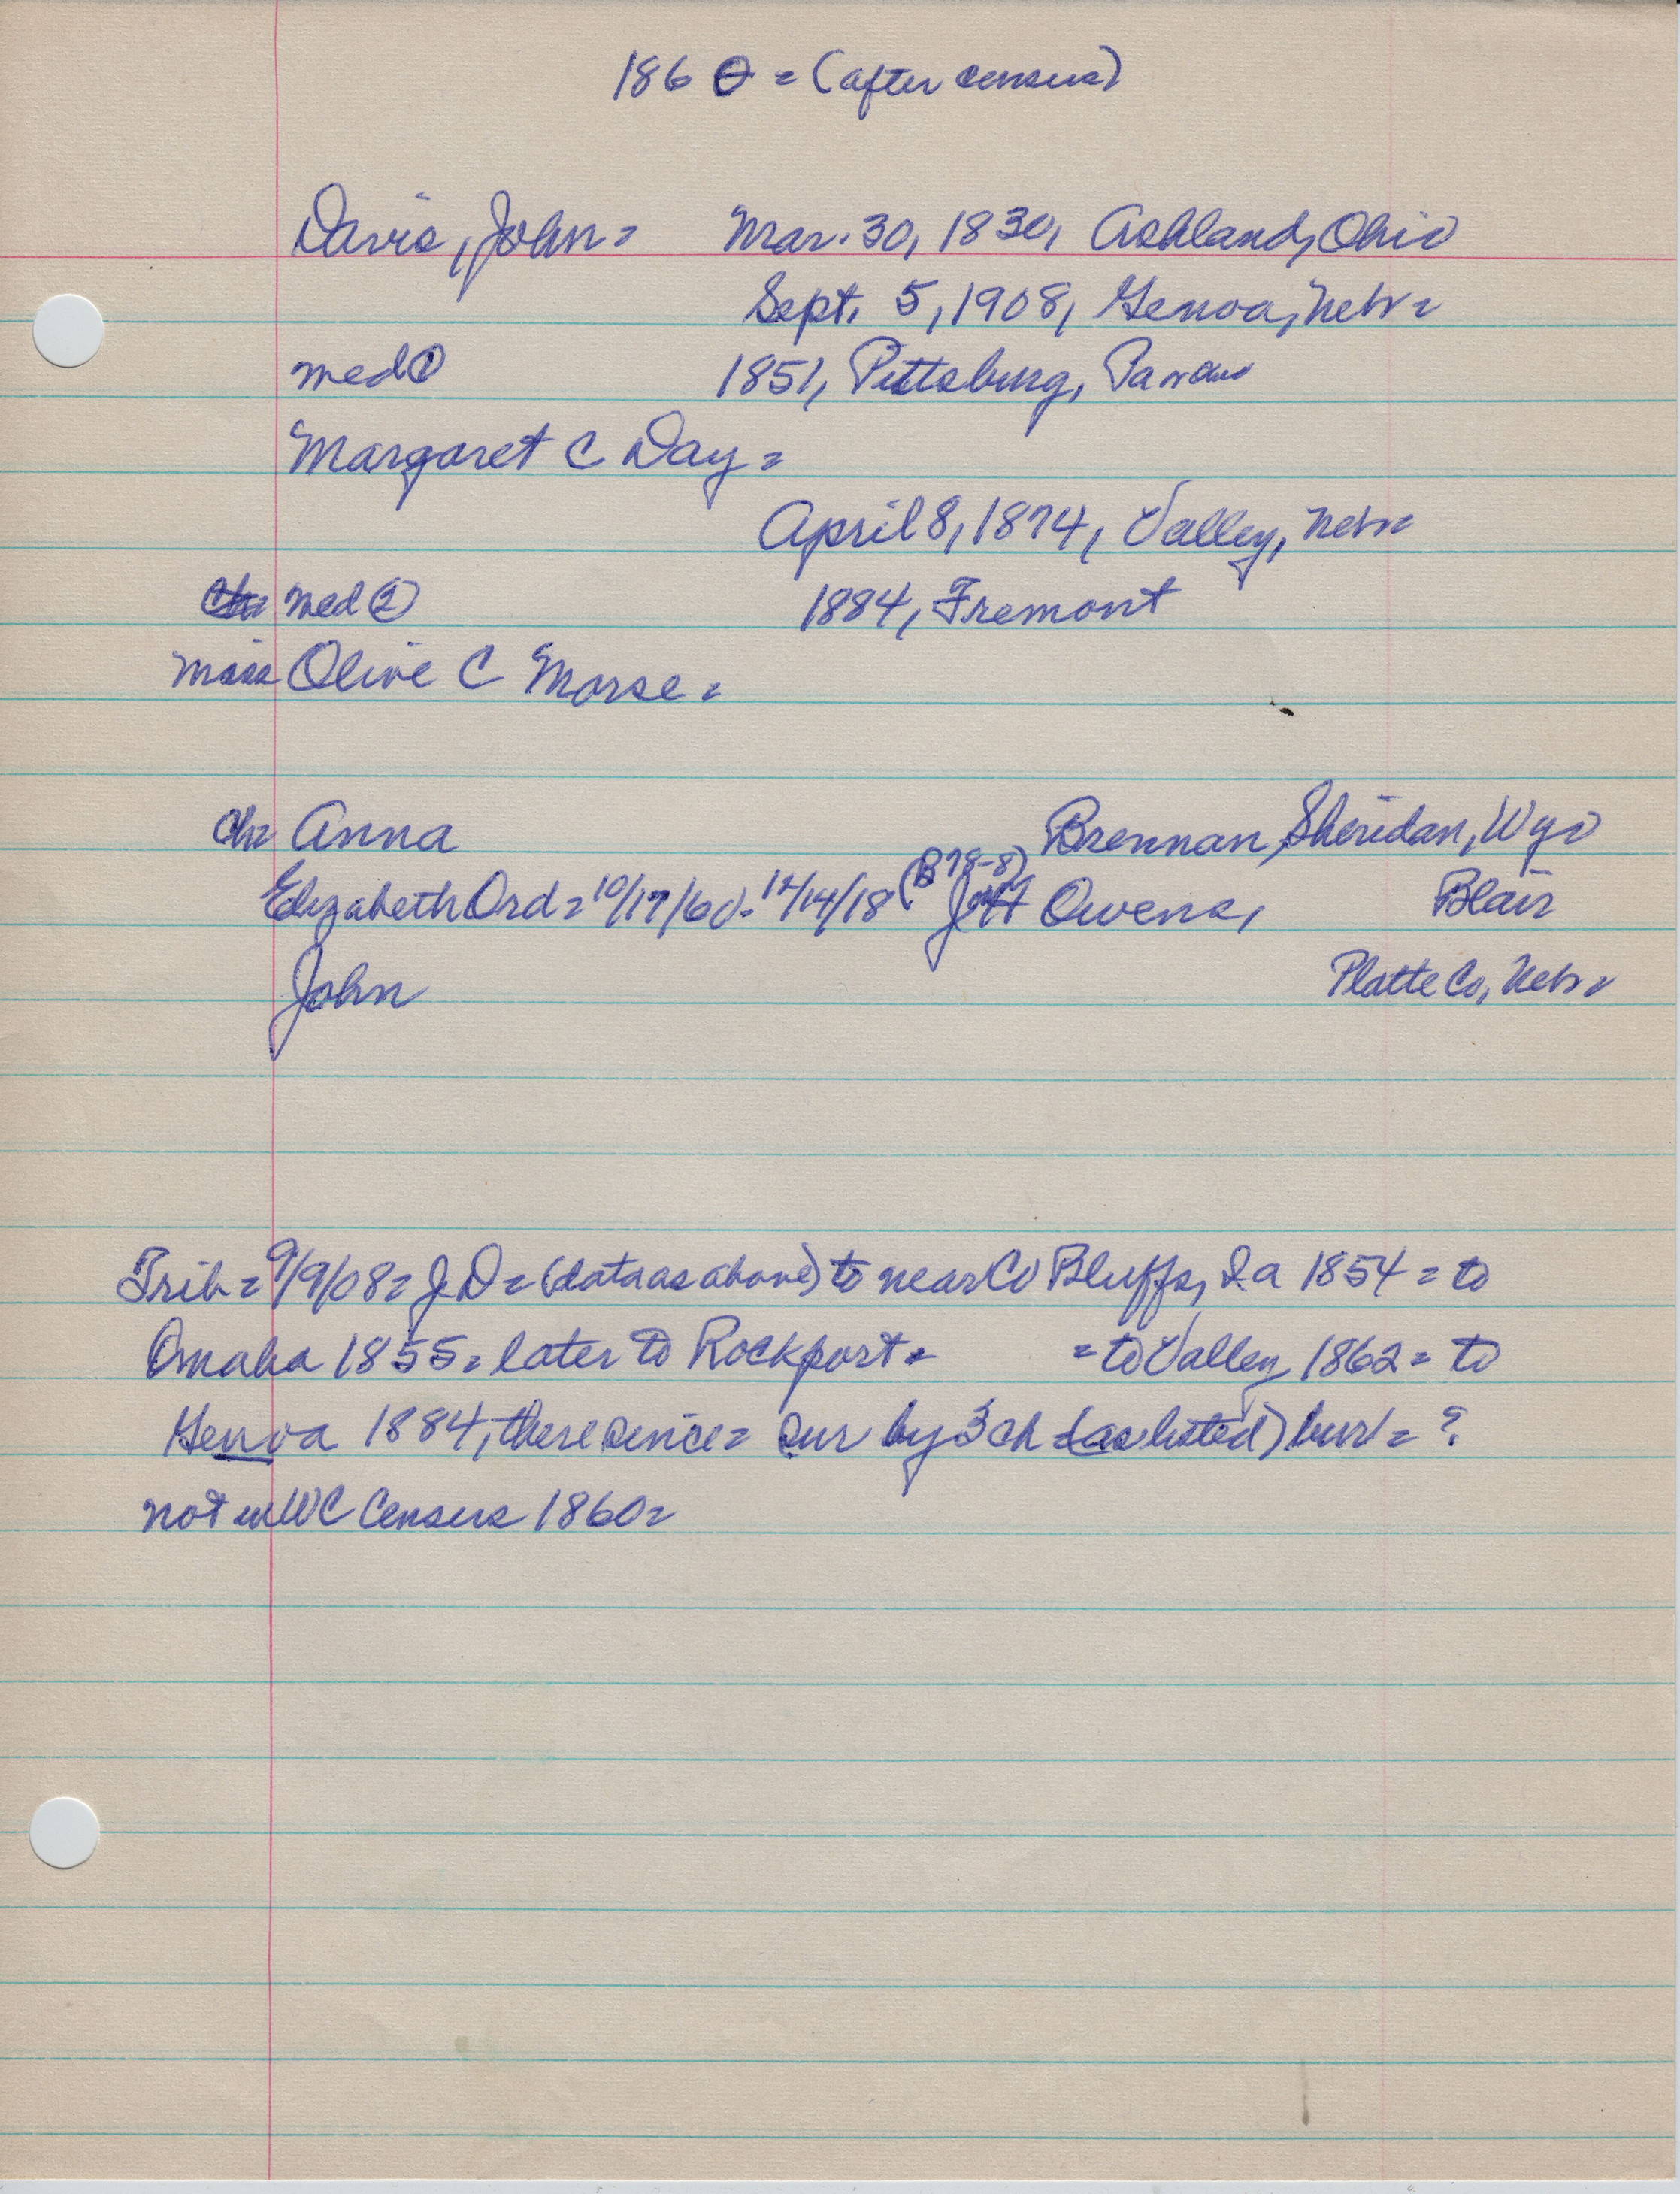 1860 = (after census)
Davis, John = Mar. 30, 1830, Ashland, Ohio
Sept. 5, 1908, Genoa, Nebr =
med ① 1851, Pittsburg, Pa
Margaret C Day =
April 8, 1874, Valley, Nebr
med ② 1884, Fremont
Miss Olive C Morse =
Ch= Anna Brennan, Sheridan, Wyo
Elizabeth Ord = 10/17/60 - 12/14/18 (B 78-8) Owens, Blair
John Platte Co, Nebr
Trib = 9/9/08 = J D = (data as above) to near Co Bluffs, Ia 1854 = to
Omaha 1855 = later to Rockport = = to Valley 1862 = to
Genoa 1884, there since = Sur by 3 ch (as listed) bur = ?
not in WC Census 1860 =